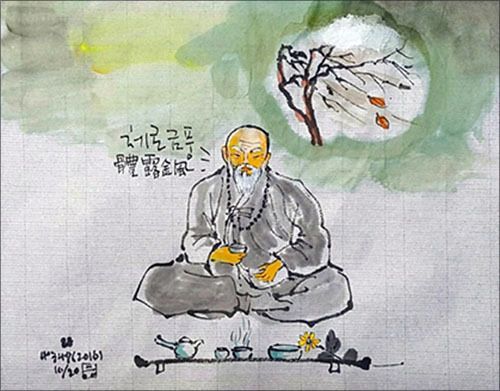 체로금풍
體露金風
(2016)
10/20